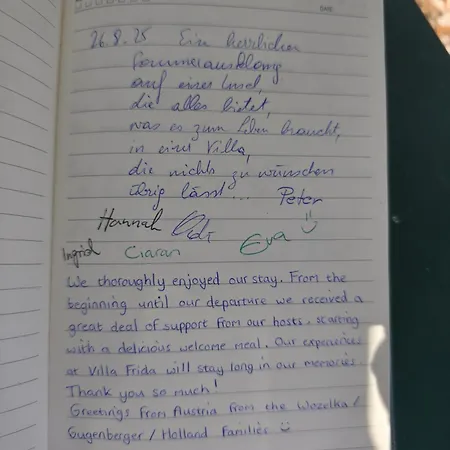 DATE
26.8.25 Ein herrlicher
Sommerausklang
auf einer Insel,
die alles bietet,
was es zum Leben braucht,
in einer Villa,
die nichts zu wünschen
übrig lässt... Peter
Hannah
Ingrid Ciaran Eva
We thoroughly enjoyed our stay. From the
beginning until our departure we received a
great deal of support from our hosts, starting
with a delicious welcome meal. Our experiences
at Villa Frida will stay long in our memories.
Thank you so much!
Greetings from Austria from the Wozelka /
Gugenberger / Holland Families